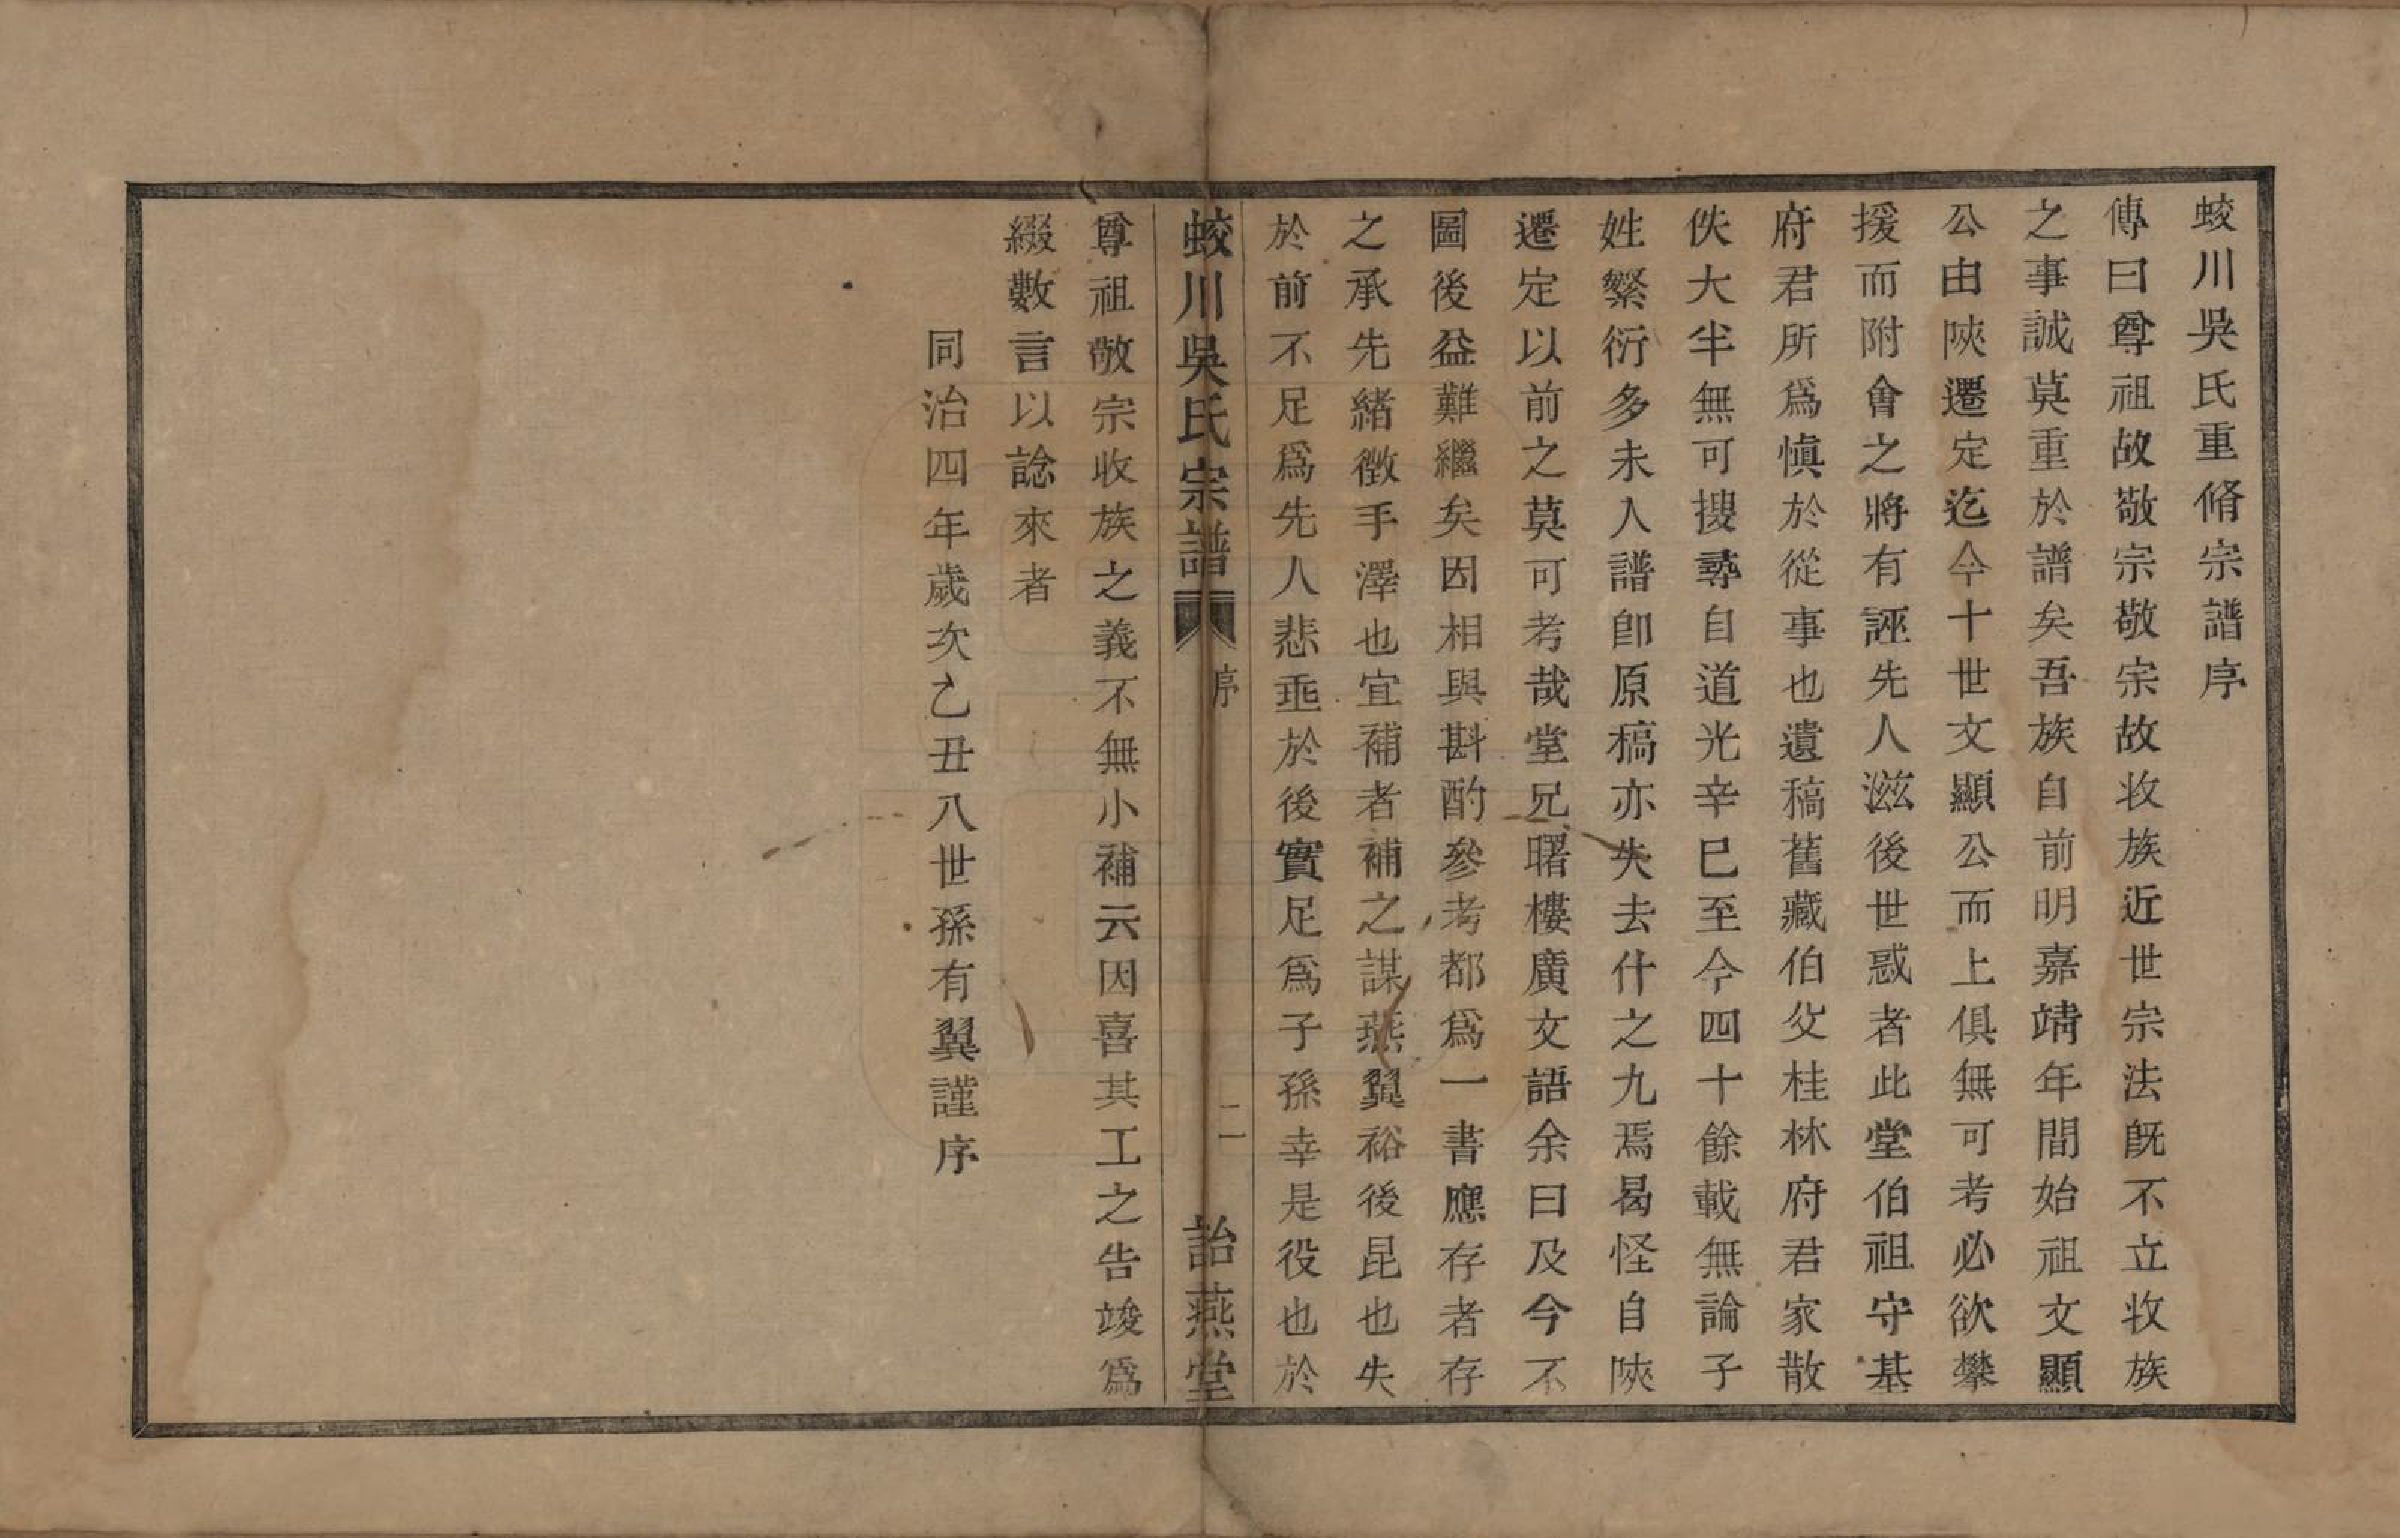 蛟川吳氏重脩宗譜序
傳曰尊祖故敬宗敬宗故收族近世宗法旣不立收族
之事誠莫重於譜矣吾族自前明嘉靖年間始祖文顯
公由陜遷定迄今十世文顯公而上俱無可考必欲攀
援而附會之將有誣先人滋後世惑者此堂伯祖守基
府君所爲愼於從事也遺稿舊藏伯父桂林府君家散
佚大半無可搜尋自道光辛巳至今四十餘載無論子
姓繁衍多未入譜卽原稿亦失去什之九焉曷怪自陜
遷定以前之莫可考哉堂兄曙樓廣文語余曰及今不
圖後益難繼矣因相與斟酌參考都爲一書應存者存
之承先緒徵手澤也宜補者補之謀燕翼裕後昆也失
於前不足爲先人悲垂於後實足爲子孫幸是役也於
蛟川吳氏宗譜 序 二 詒燕堂
尊祖敬宗收族之義不無小補云因喜其工之告竣爲
綴數言以諗來者
同治四年歲次乙丑八世孫有翼謹序